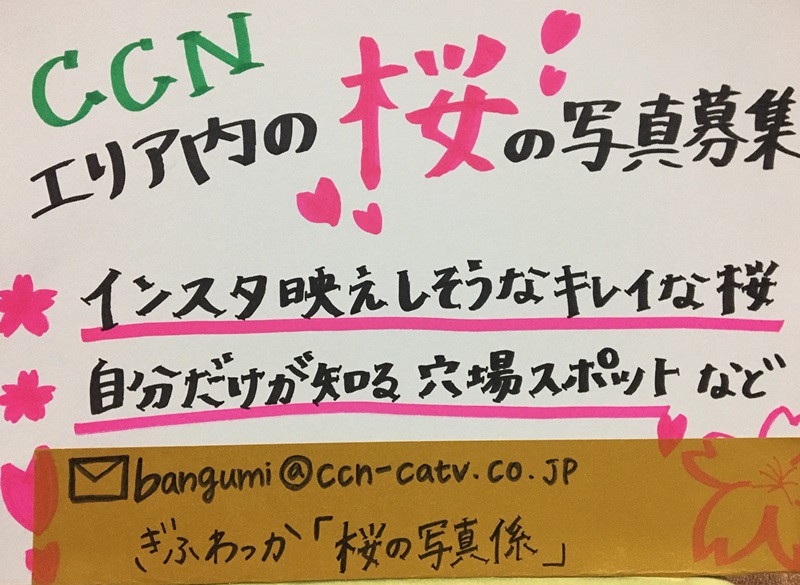 CCN
エリア内の桜の写真募集
インスタ映えしそうなキレイな桜
自分だけが知る穴場スポットなど
bangumi@ccn-catv.co.jp
ぎふわっか「桜の写真係」